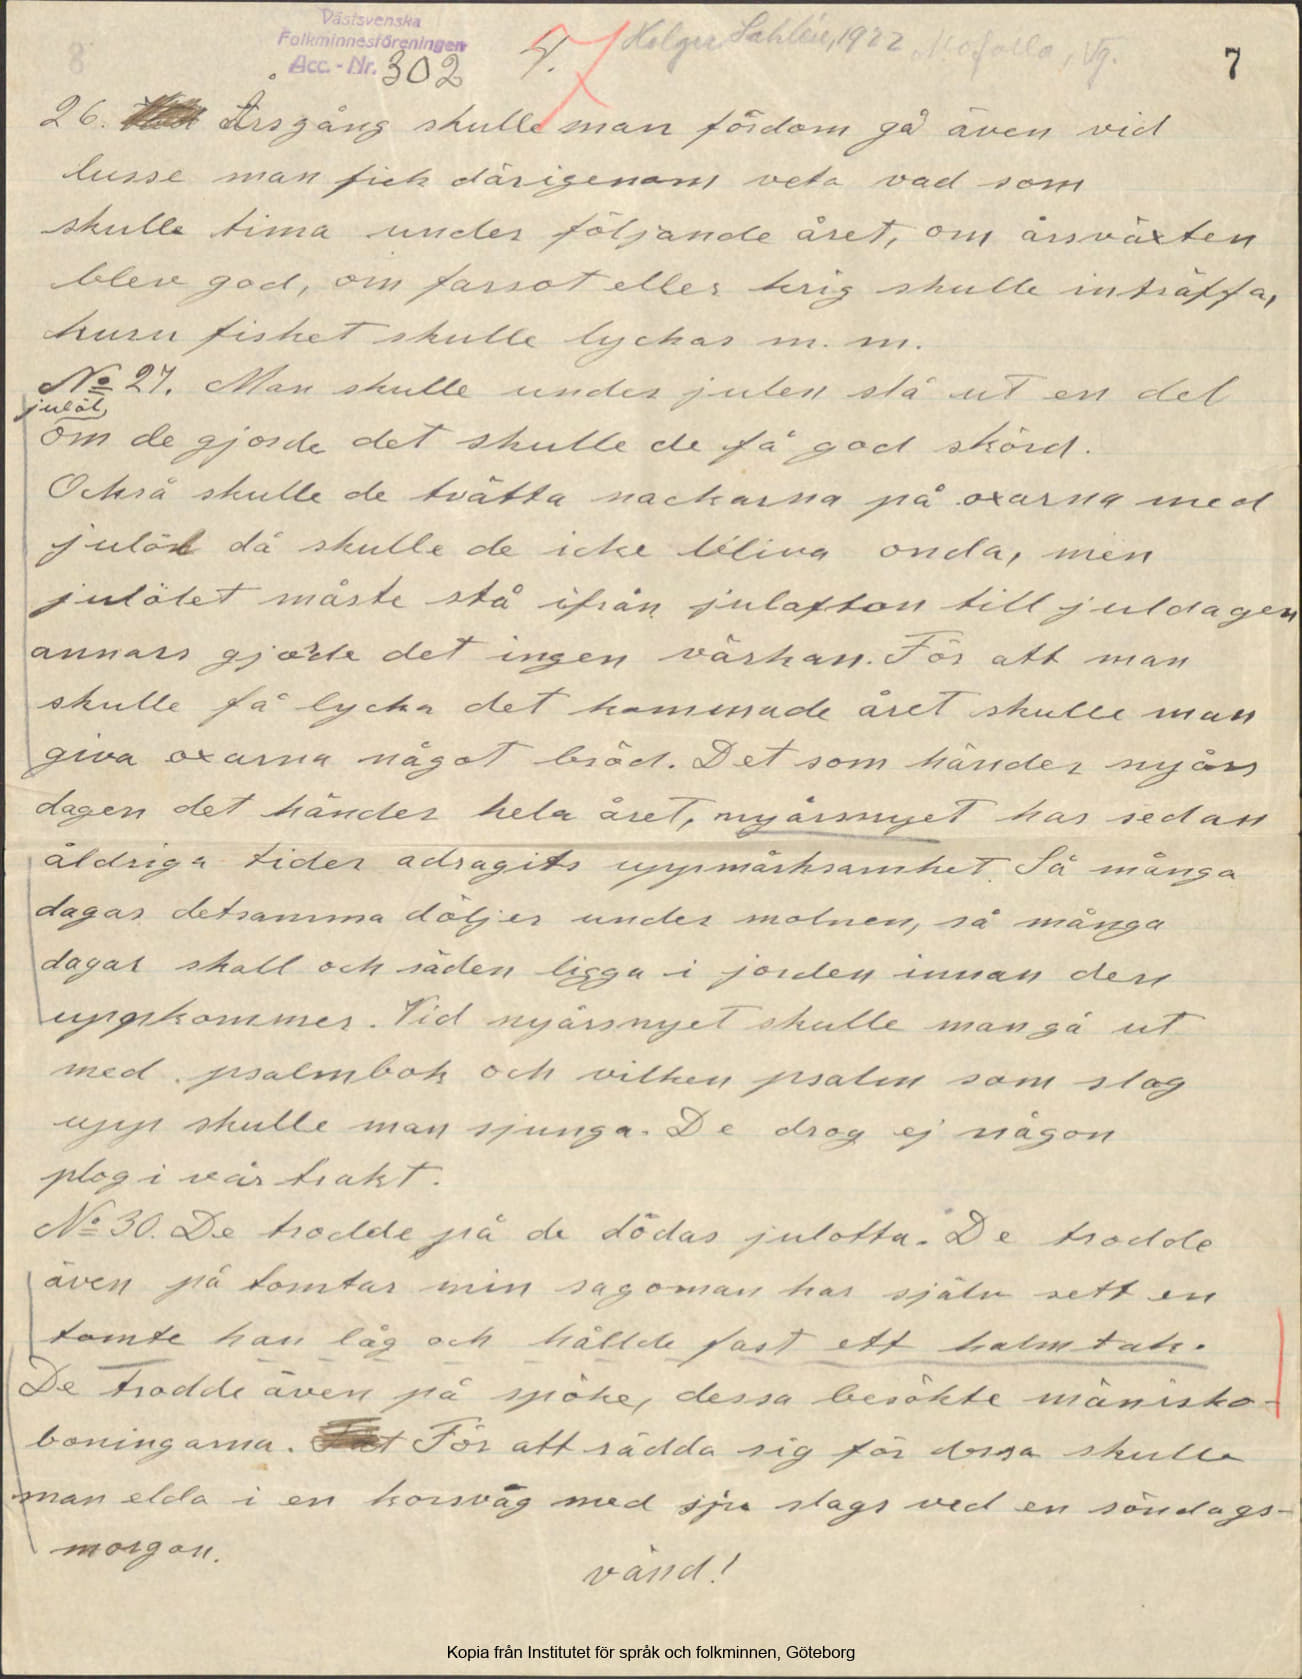 Västsvenska
Folkminnesföreningen
Acc. - Nr. 302
Holger Sahlén, 1922 Mofalla, Vg.
7
8
26. Årsgång skulle man fördom gå även vid
lusse man fick därigenom veta vad som
skulle tima under följande året, om årsväxten
blev god, om farsot eller krig skulle inträffa,
huru fisket skulle lyckas m. m.
No 27. Man skulle under julen slå ut en del
julöl,
om de gjorde det skulle de få god skörd.
Också skulle de tvätta nackarna på oxarna med
julöl då skulle de icke bliva onda, men
julölet måste stå ifrån julafton till juldagen
annars gjorde det ingen värkan. För att man
skulle få lycka det kommade året skulle man
giva oxarna något bröd. Det som händer nyårs
dagen det händer hela året, nyårsnyet har sedan
åldriga tider adragits uppmärksamhet. Så många
dagar detsamma döljes under molnen, så många
dagar skall och säden ligga i jorden innan den
uppkommer. Vid nyårsnyet skulle man gå ut
med psalmbok och vilken psalm som slog
upp skulle man sjunga. De drog ej någon
plog i vår trakt.
No 30. De trodde på de dödas julotta. De trodde
även på tomtar min sagoman har själv sett en
tomte han låg och hållde fast ett halmtak.
De trodde även på spöke, dessa besökte människo-
boningarna. För att rädda sig för dessa skulle
man elda i en korsväg med sju slags ved en söndags-
morgon.
vänd!
Kopia från Institutet för språk och folkminnen, Göteborg